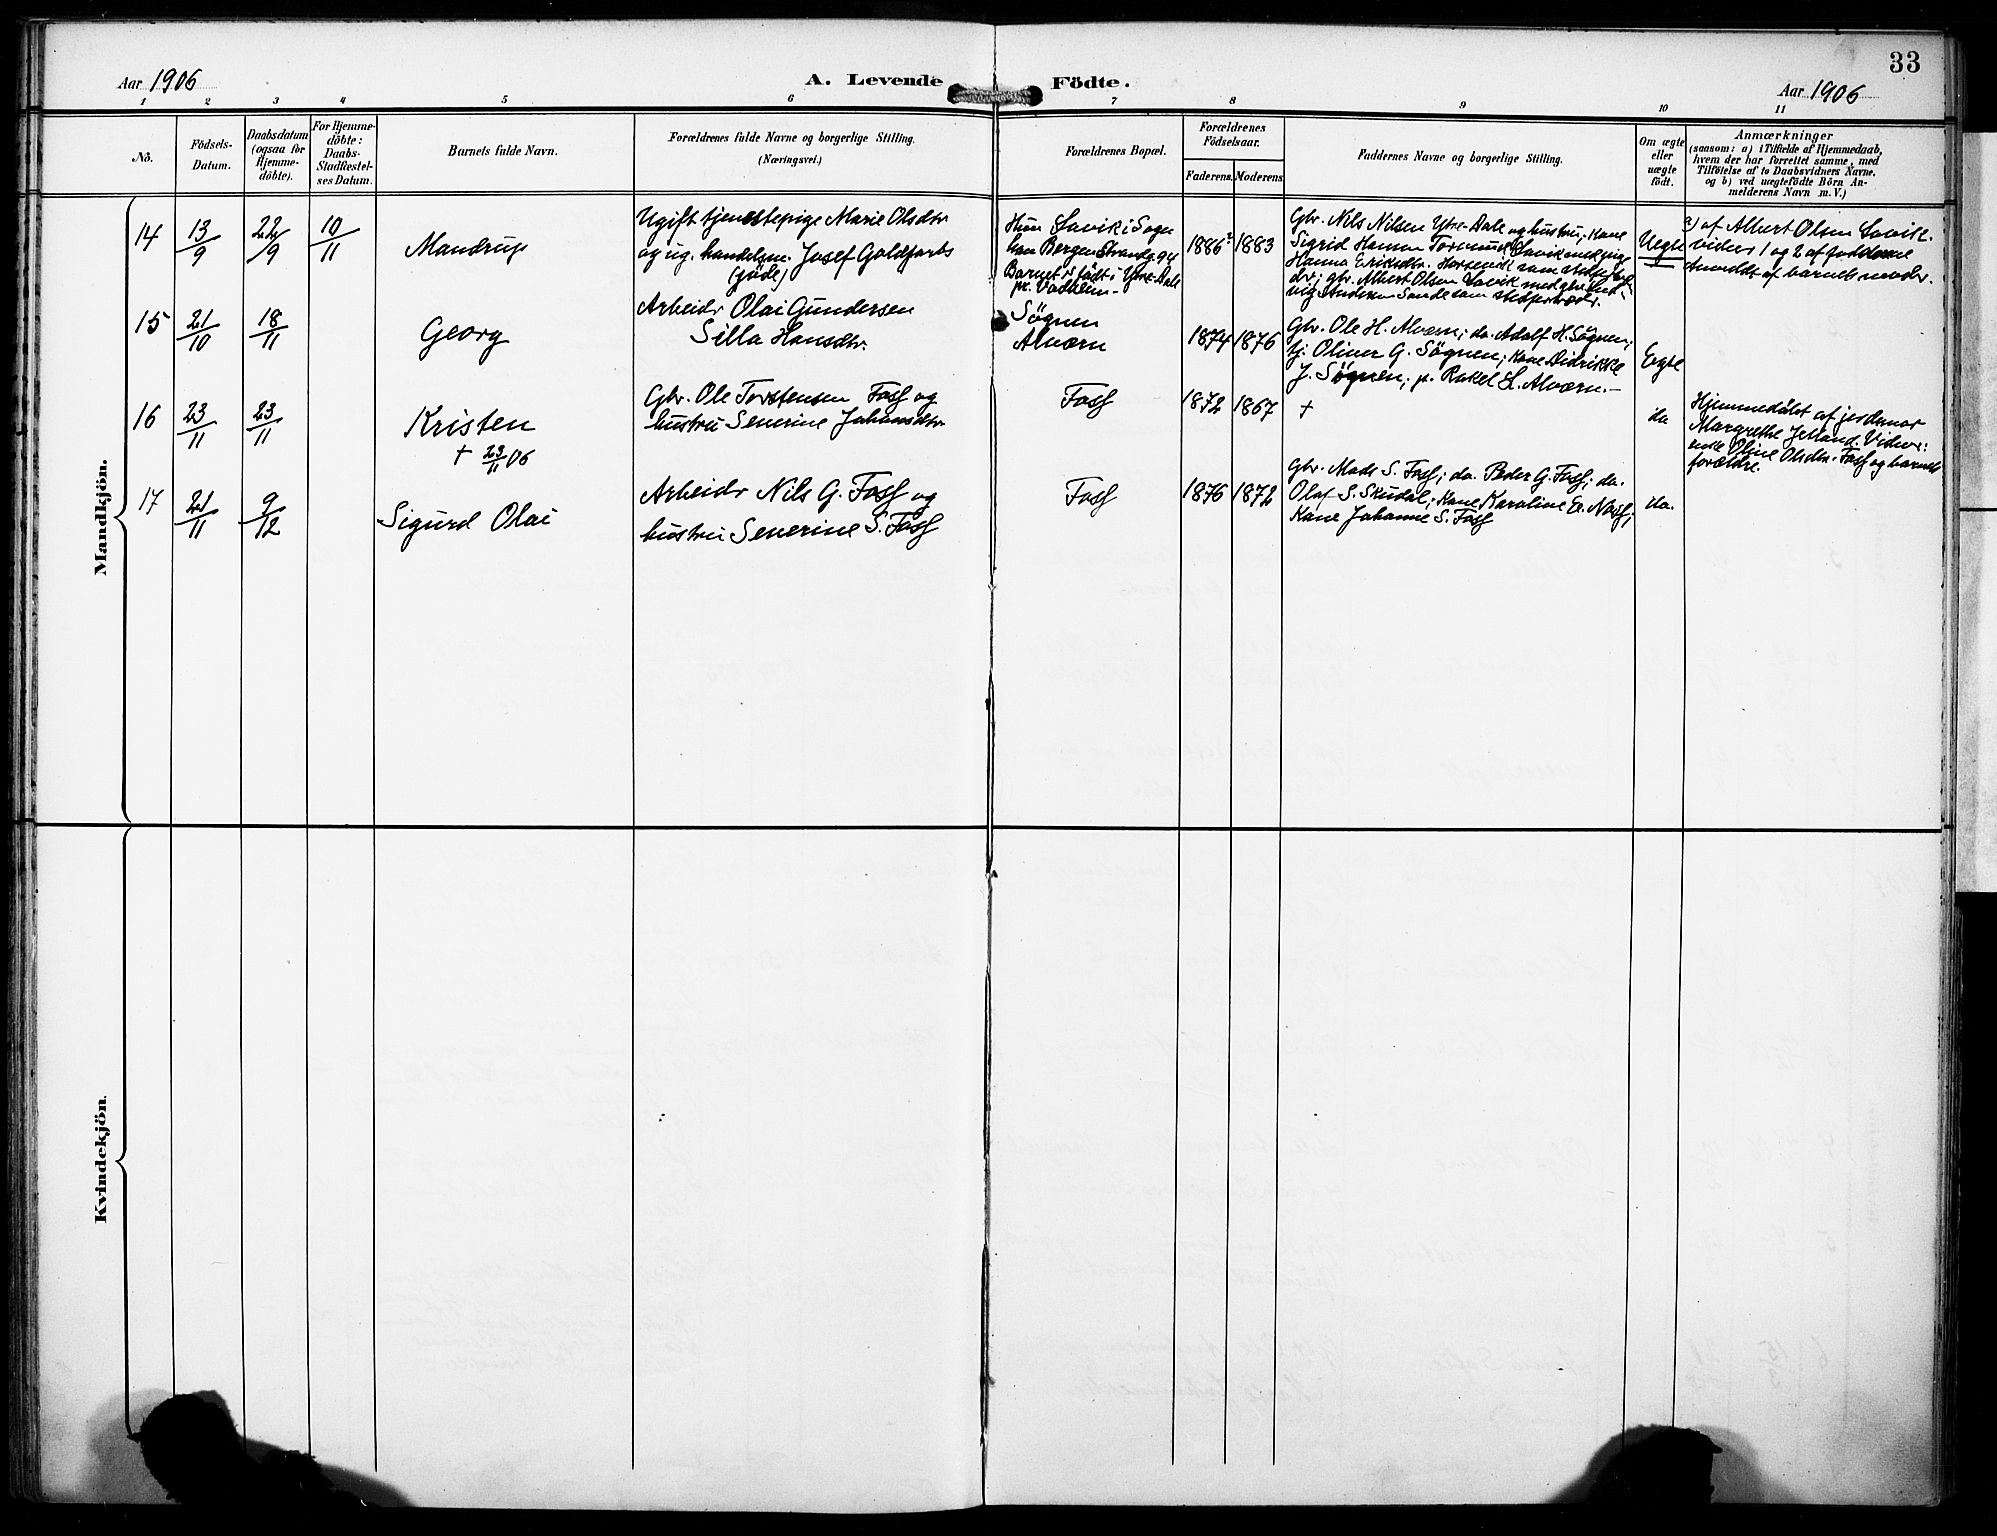 33
Aar 1906
A. Levende Födte.
Aar 1906
1 2 3 4 5 6 7 8 9 10 11
No.
Födsels-
Datum.
Daabsdatum
(ogsaa for
Hjemme-
döbte).
For Hjemme-
döbte:
Daabs-
Stadfæstel-
ses Datum.
Barnets fulde Navn.
Forældrenes fulde Navne og borgerlige Stilling.
(Næringsvei.)
Forældrenes Bopæl.
Forældrenes
Födselsaar.
Faderens. Moderens.
Faddernes Navne og borgerlige Stilling.
Om ægte
eller
uægte
födt.
Anmærkninger
(saasom: a) i Tilfælde af Hjemmedaab,
hvem der har forrettet samme, med
Tilföielse af to Daabsvidners Navne.
og b) ved uægtefödte Börn An-
melderens Navn m. V.)
Mandkjön.
14
13/9
22/9
10/11
Mandrup
Ugift tjenestepige Marie Olsdtr
og ug. handelsm. Josef Goldfarb
(jøde)
Hun Lavik i Sogn
han Bergen Strandg. 94
Barnet er født i Ytre-Dale
pr. Vadheim-
1886? 1883
Gbr. Nils Nilsen Ytre-Dale og hustru; Kone
Sigrid Hansen Lavik med pige
Hanna Eriksdtr. som stedfortræ-
der; gbr. Albert Olsen Lavik med
Andersen Sande som stedfortræder.
Uegte
a) af Albert Olsen Lavik.
vidner 1 og 2 af fadderne
Anmeldt af barnets moder.
15
21/10
18/11
Georg
Arbeider Olai Gundersen
Silla Hansdtr.
Søgnen
Alværn
1874 1876
Gbr. Ole H. Alværn; do. Adolf H. Søgnen;
tj. Oliver G. Søgnen; Kone Didrikke
J. Søgnen; p. Rakel L. Alværn.-
Egte
16
23/11
23/11
Kristen
+ 23/11 06
Gbr. Ole Torstensen Foss og
hustru Severine Johansdtr.
Foss
1872 1867
+
do
Hjemmedøbt af jordemor
Margrethe Vidner:
enke Oline Olsdtr. Foss og barnets
forældre.
17
21/11
9/12
Sigurd Olai
Arbeider Nils G. Foss og
hustru Severine S. Foss
Foss
1876 1872
Gbr. Mads S. Foss; do. Peder G. Foss; do.
Olaf S. Skudal; Kone Karoline E. Nass;
Kone Johanne S. Foss
do.
Kvindekjön.